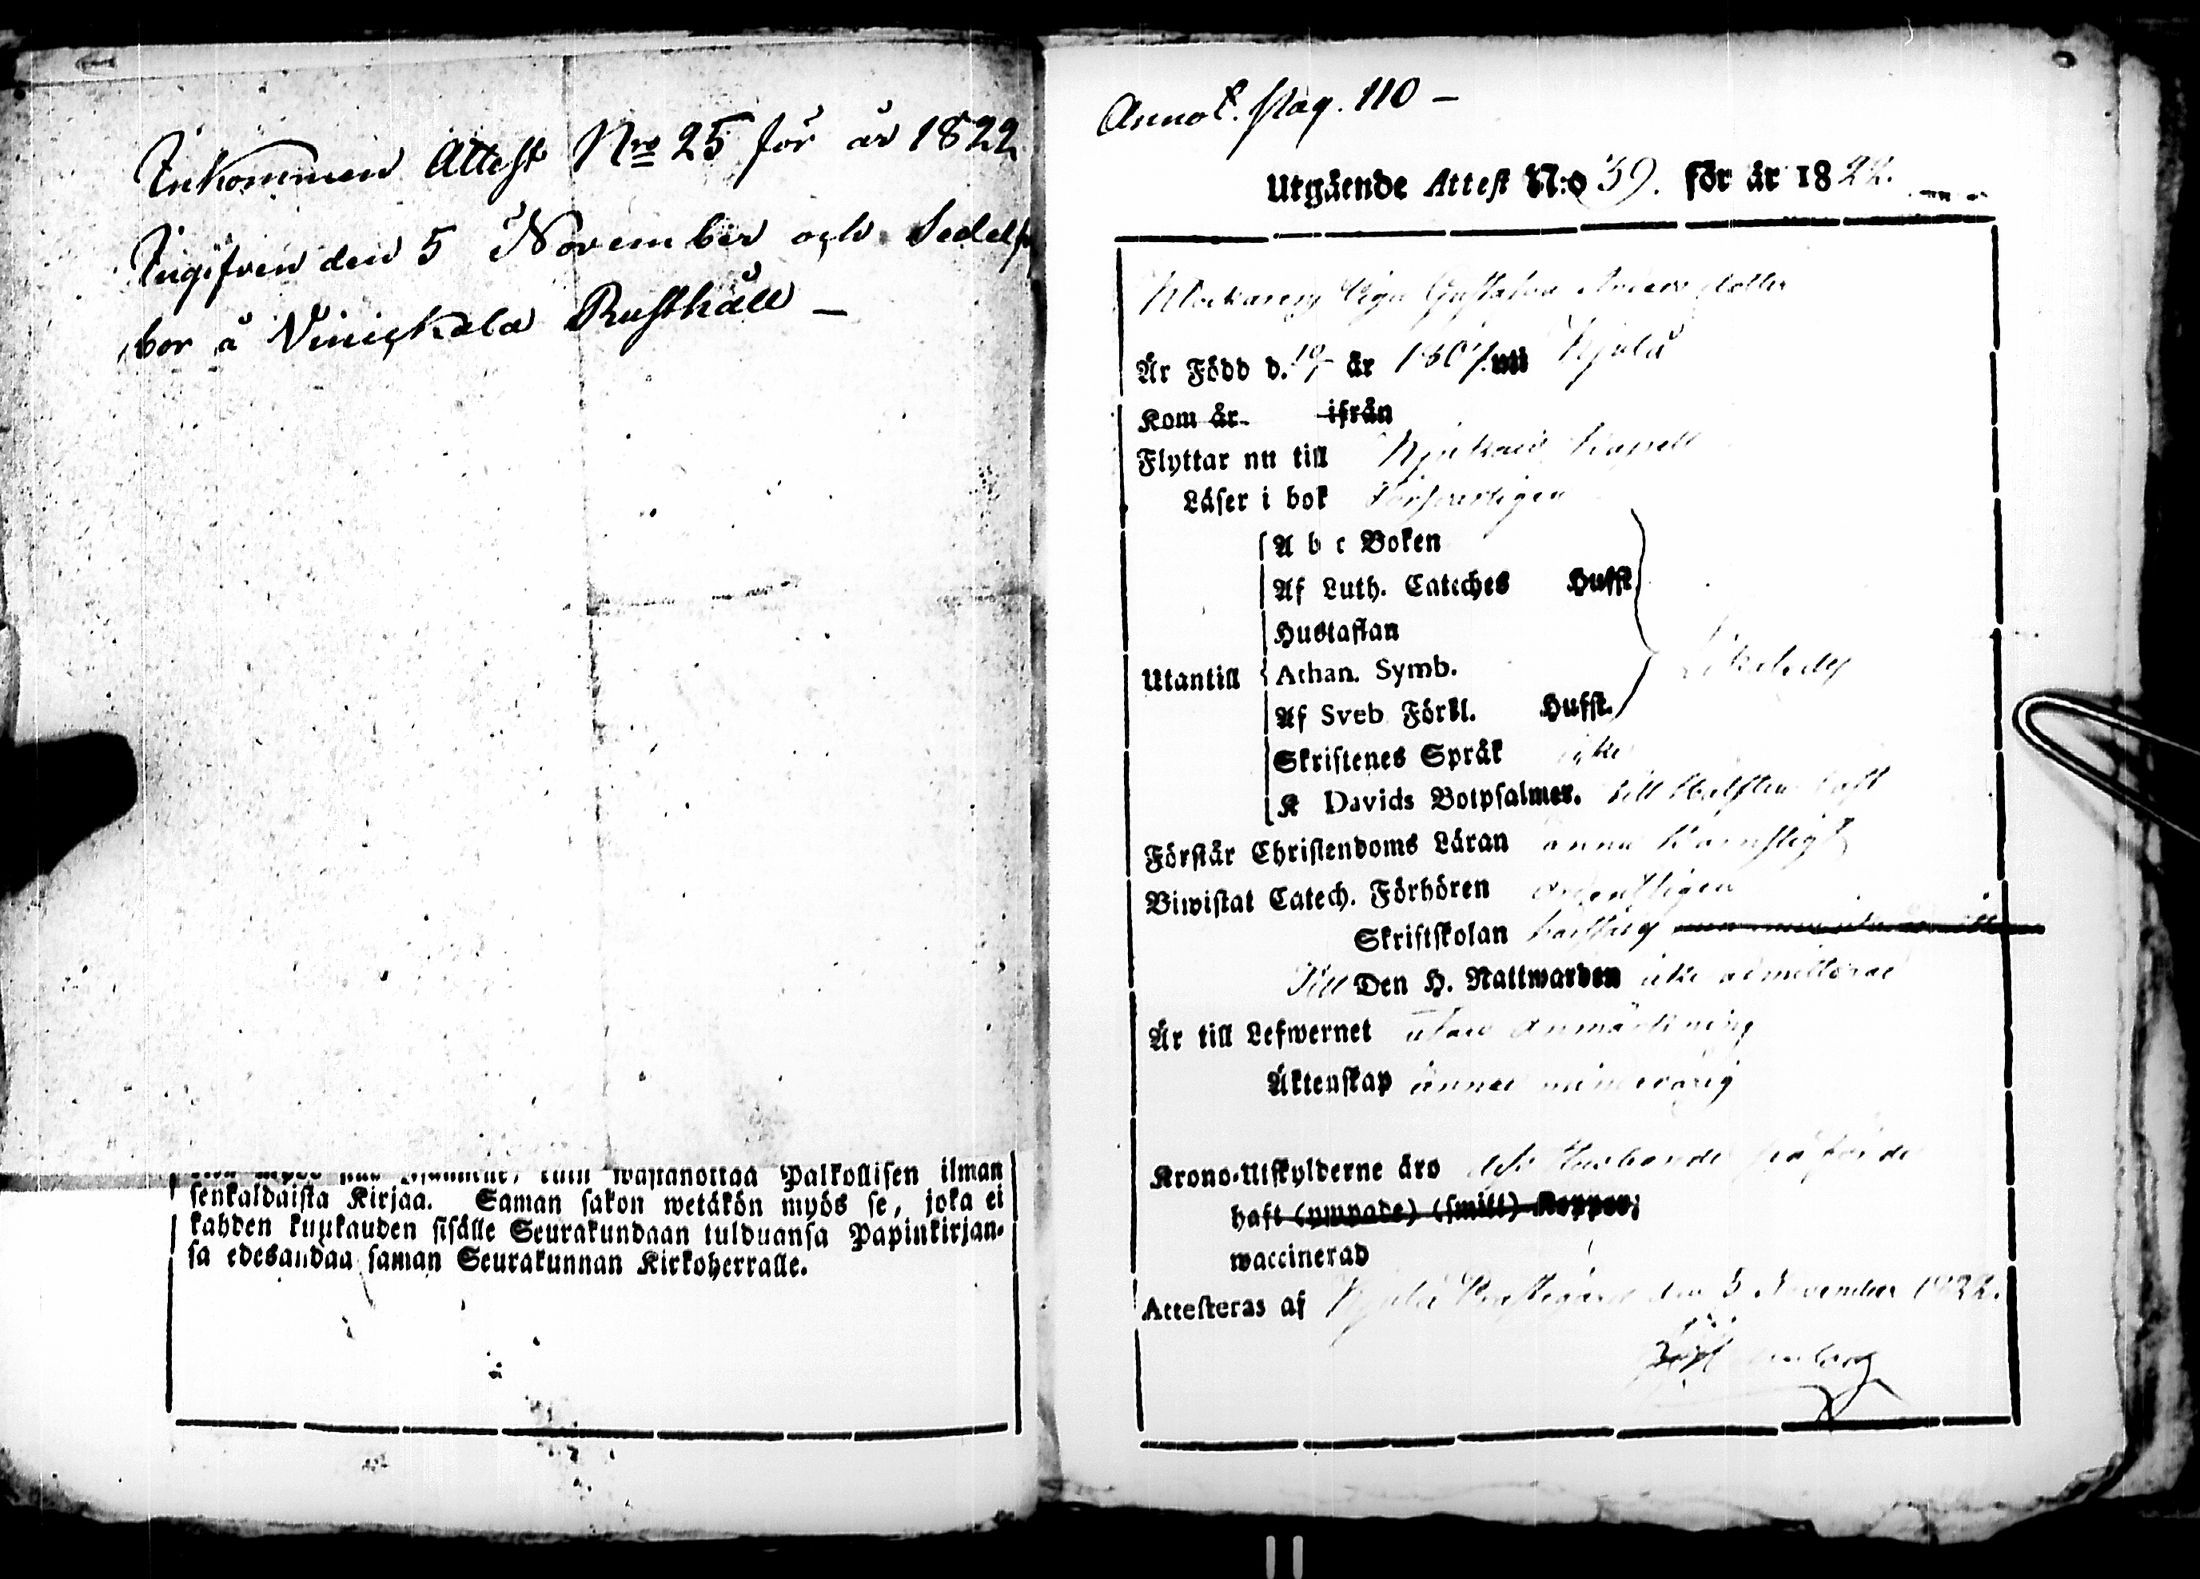 Inkommen Attest Nro 25 för år 1822
Ingifven den 5 November och Sedel
bor å Viniskala Rusthåll –
wastanottaa Palkollisen ilman
senkaldaista Kirjaa. Saman sakon wetäkön myös se, joka ei
kahden kuukauden sisälle Seurakundaan tulduansa Papinkirjan-
sa edesandaa saman Seurakunnan Kirkoherralle.
Annot. pag. 110 –
Utgående Attest N:o 39. för år 1822.
Pigan Gustafva Andersdotter
Är Född d. 19/ år 1807. uti Kjulå
Kom år ifrån
Flyttar nu till Kjukais Kapell
Läser i bok Försvarligen
A b c Boken
Af Luth. Cateches Hufst.
Hustaflan
Utantill Athan. Symb. Likaledes
Af Sveb Förkl. Hufst.
Skriftenes Språk icke
K Davids Botpsalmer. till Hälften
Förstår Christendoms Läran ännu
Biwistat Catech. Förhören ordentligen
Skriftskolan
Till Den H. Nattwarden icke admitterad
Är till Lefwernet utan Anmärkning
Äktenskap ännu minderårig
Krono-Utskylderne äro påförde
haft (ympade) (smitt) Koppor,
waccinerad
Attesteras af Kjulå Prästegård den 5 November 1822.